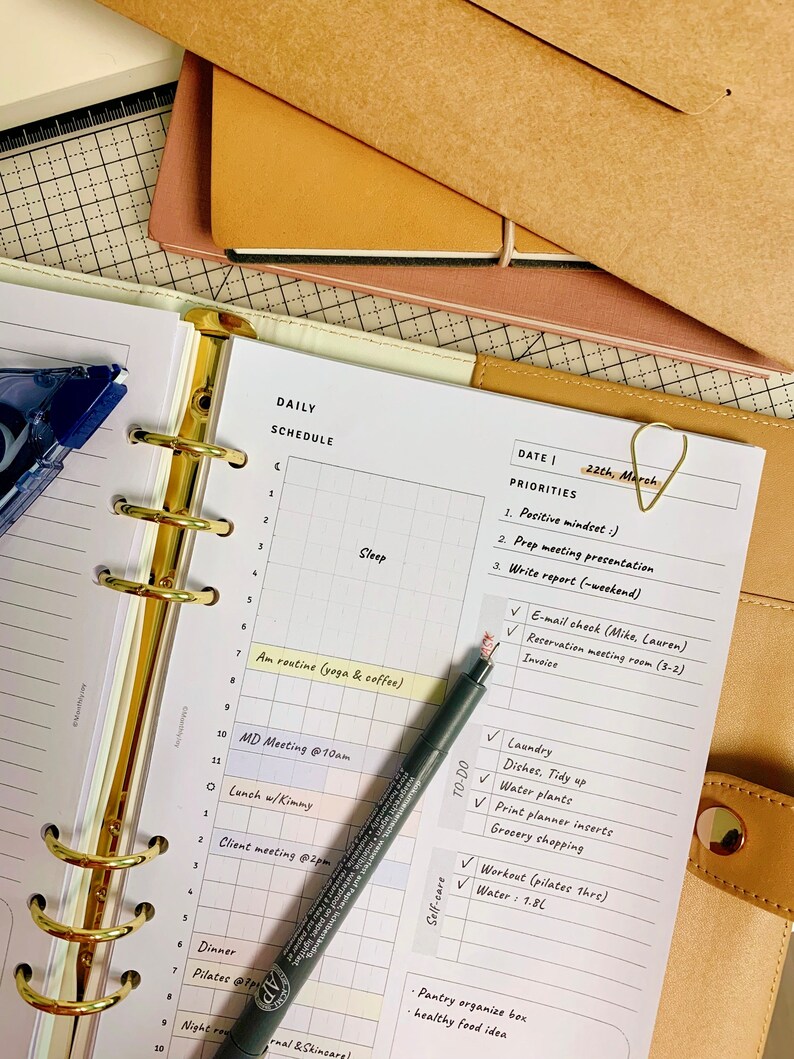 DAILY
SCHEDULE
1
2
3
4
5
6
7
8
9
10
11
1
2
3
4
5
6
7
8
9
10
Sleep
Am routine (yoga & coffee)
MD Meeting @10am
Lunch w/Kimmy
Client meeting @2pm
Dinner
Pilates @7p
Night rou
rnal &Skincare)
DATE | 22th, March
PRIORITIES
1. Positive mindset :)
2. Prep meeting presentation
3. Write report (~weekend)
ASK
✓ E-mail check (Mike, Lauren)
✓ Reservation meeting room (3-2)
Invoice
TO-DO
✓ Laundry
Dishes, Tidy up
✓ Water plants
✓ Print planner inserts
Grocery shopping
Self-care
✓ Workout (pilates 1hrs)
✓ Water : 1.8L
· Pantry organize box
· healthy food idea
©MonthlyJoy
©MonthlyJoy
dokumentenecht, wasserfest auf Papier, lichtbeständig,
indelible, waterproof on paper, lightfast,
AP